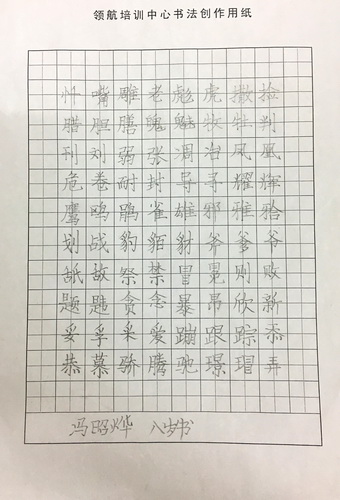 领航培训中心书法创作用纸
忏嘴雕老彪虎撒捡
腊胆膳魄魅牧牡判
刊刘弱张凋冶凤凰
危卷耐封导寻耀辉
鹰鸣鹃雀雄邪雅
划战豹貊豺斧爹爷
舐故祭禁冒冕则败
题题贪念暴昂欣新
妥孚采爱蹦跟踪忝
恭慕骄腾驰璟瑁弄
冯昭烨 八岁书